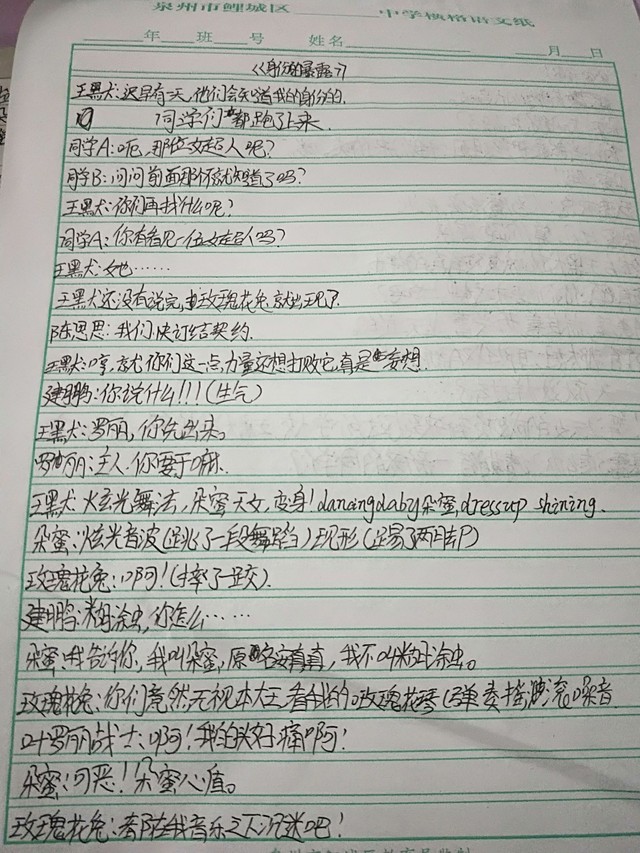 泉州市鲤城区 中学横格语文纸
年 班 号 姓名 月 日
《身份的暴露》
王黑犬:迟早有一天,他们会知道我的身份的.
同学们都跑了上来.
同学A:呃,那位女超人呢?
同学B:问问前面那个不就知道了吗?
王黑犬:你们再找什么呢?
同学A:你有看见一位女超人吗?
王黑犬:她……
王黑犬还没有说完,玫瑰花兔就出现了.
陈思思:我们快订结契约.
王黑犬:哼,就你们这一点力量还想打败它,真是妄想.
建鹏:你说什么!!!(生气)
王黑犬:罗丽,你先出来。
罗丽:主人.你要干嘛.
王黑犬:炫光舞法,朵蜜天女,变身!dancing daby朵蜜,dress up shining.
朵蜜:炫光音波(跳了一段舞蹈)现形(踢了两脚)
玫瑰花兔:啊!(摔了一跤).
建鹏:糊涂虫,你怎么……
朵蜜:我告诉你,我叫朵蜜,原名安真真,我不叫糊涂虫。
玫瑰花兔:你们竟然无视本大王,看我的玫瑰花琴(弹奏摇滚 噪音
叶罗丽战士:啊!我的头好痛啊!
朵蜜:可恶!朵蜜心值。
玫瑰花兔:都在我音乐之下沉迷吧!